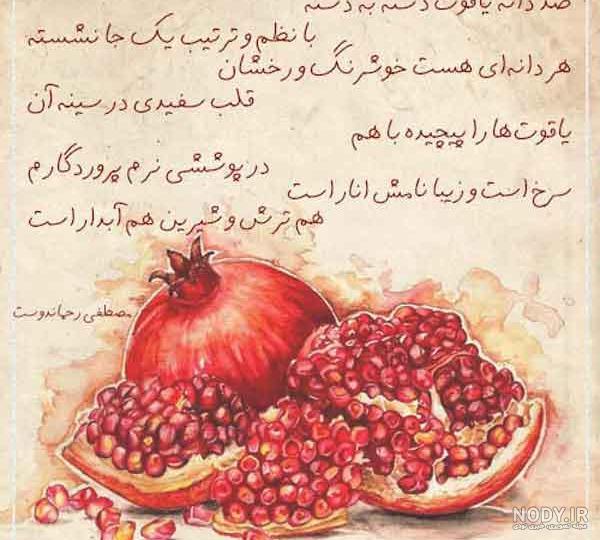 صد دانه یاقوت دسته به دسته
با نظم و ترتیب یک جا نشسته
هر دانه‌ای هست خوشرنگ و رخشان
قلب سفیدی در سینه آن
یاقوت‌ها را پیچیده با هم
در پوششی نرم پروردگارم
سرخ است و زیبا نامش انار است
هم ترش و شیرین هم آبدار است
مصطفی رحماندوست
NODY.IR